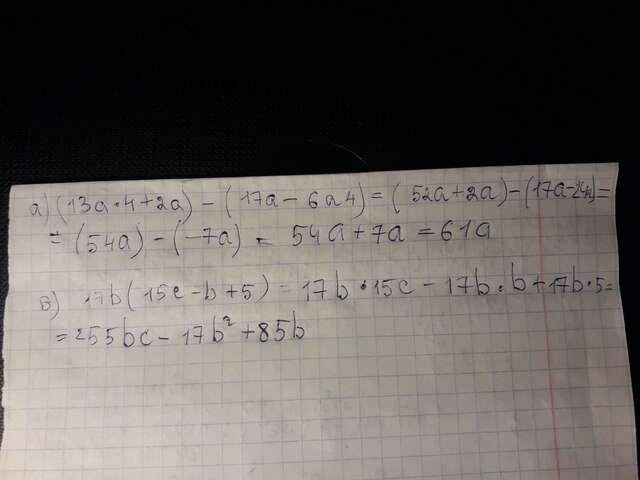 а) (13a·4+2a) - (17a - 6a4) = (52a+2a) - (17a-24a) =
= (54a) - (-7a) = 54a+7a = 61a
в) 17b(15c-b+5) = 17b·15c - 17b·b+17b·5=
= 255bc - 17b² + 85b